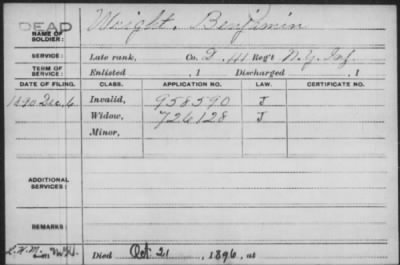 DEAD
NAME OF SOLDIER: Wright, Benjamin
SERVICE: Late rank, Co. D. 111 Reg't N.Y. Inf.
TERM OF SERVICE: Enlisted , 1 Discharged , 1
DATE OF FILING. CLASS. APPLICATION NO. LAW. CERTIFICATE NO.
1890 Dec. 6 Invalid, 958590 J
Widow, 726128 J
Minor,
ADDITIONAL SERVICES:
REMARKS:
Died Oct 21 , 1896, at